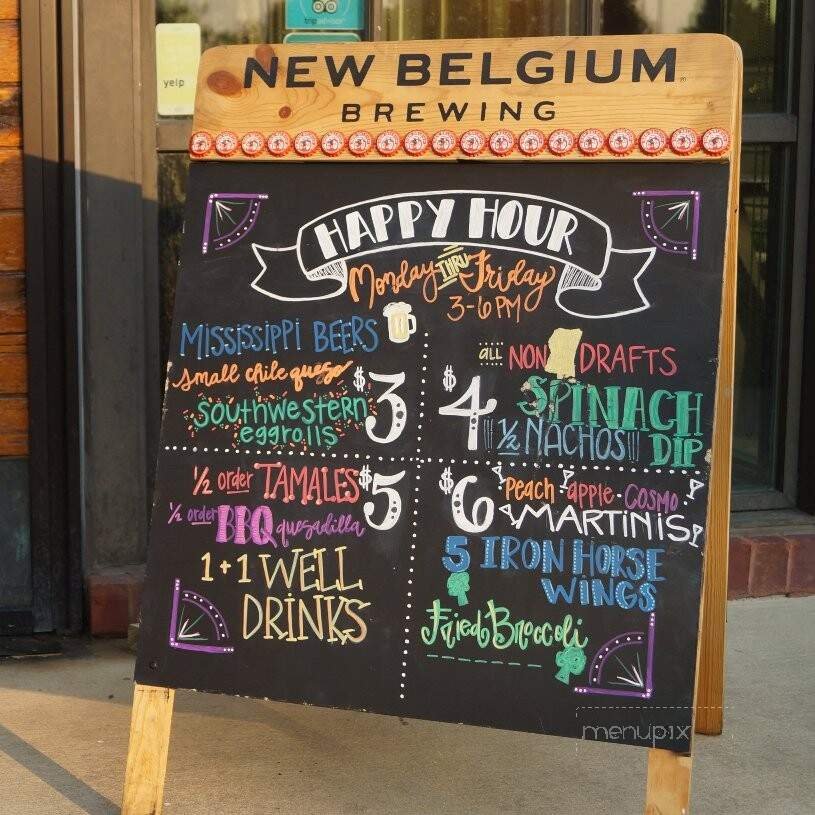 tripadvisor
yelp
NEW BELGIUM
BREWING
HAPPY HOUR
Monday THRU Friday
3-6 PM
MISSISSIPPI BEERS
small chile queso
southwestern
eggrolls
$3
all NON DRAFTS
SPINACH
DIP
1/2 NACHOS
$4
1/2 order TAMALES
1/2 order BBQ quesadilla
$5
1+1 WELL
DRINKS
$6
Peach apple • COSMO
MARTINIS
5 IRON HORSE
WINGS
Fried Broccoli
menupix